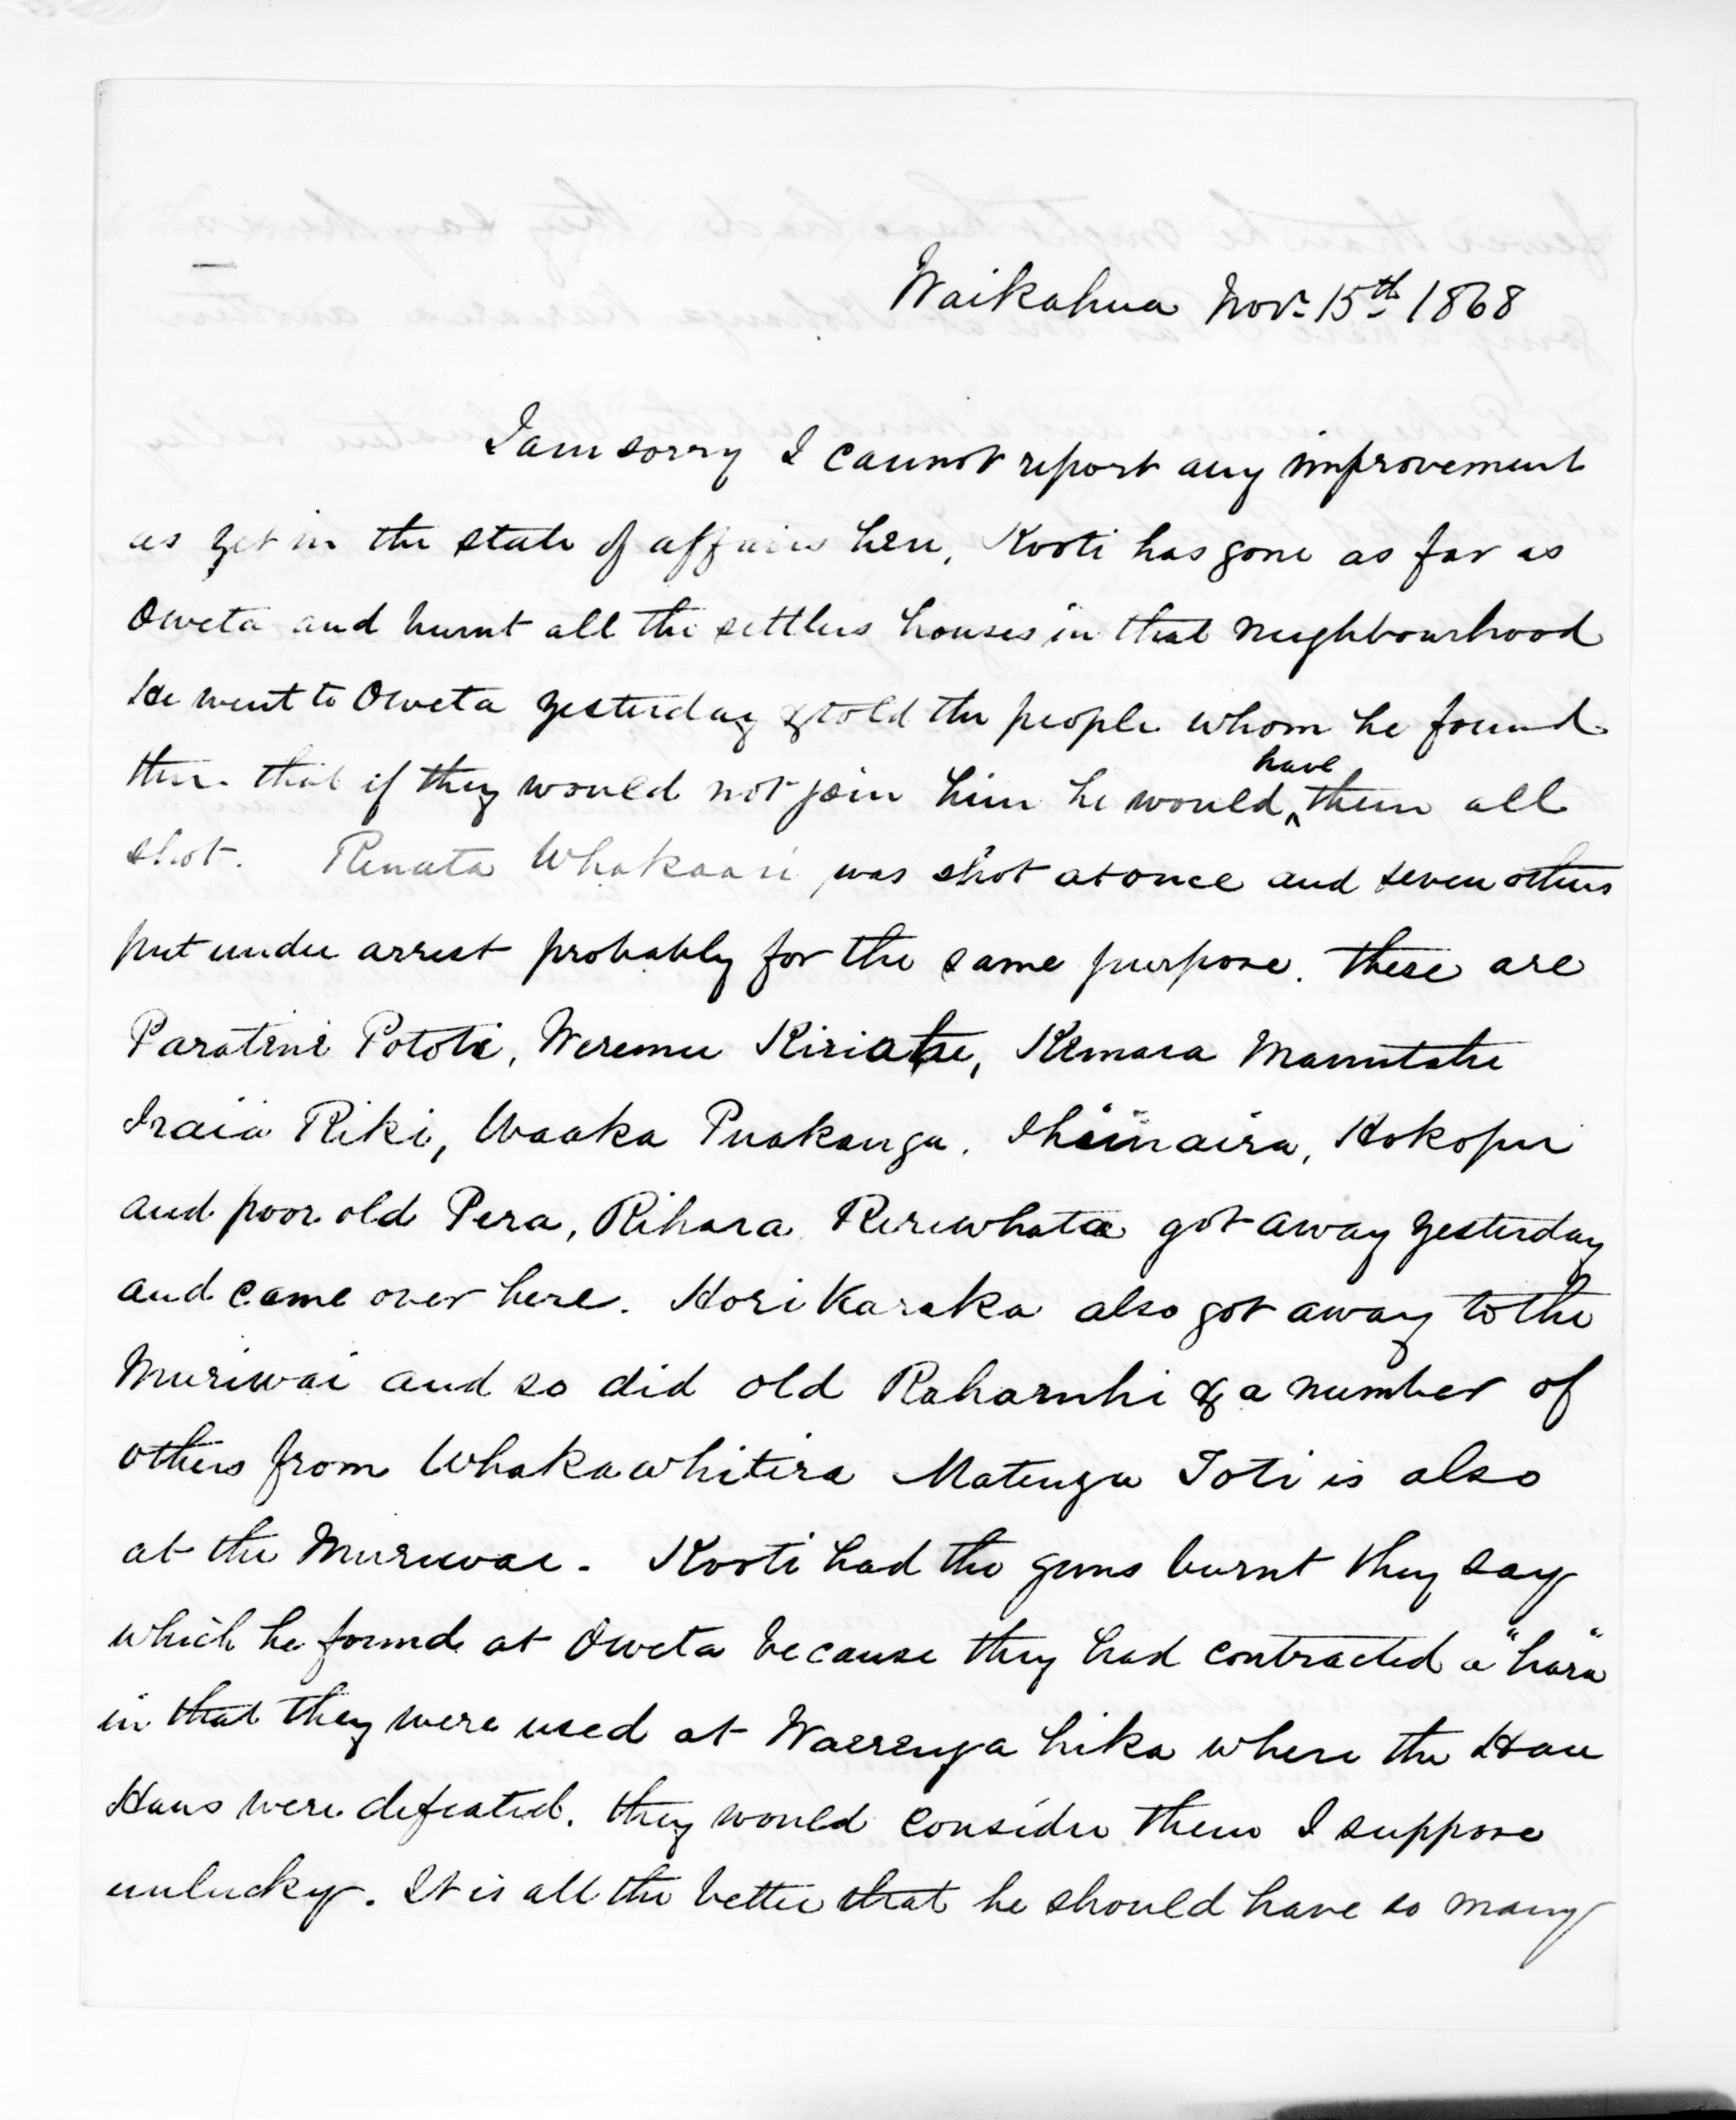 Waikahua Novr. 15th 1868
I am sorry I cannot report any improvement
as yet in the state of affairs here, Kooti has gone as far as
Oweta and burnt all the settlers houses in that neighbourhood
He went to Oweta yesterday & told the people whom he found
there that if they would not join him he would have them all
shot. Renata Whakaari was shot at once and seven others
put under arrest probably for the same purpose. These are
Paratene Pototi, Weremu Kiriahe, Kemara Manutahe
Iraia Riki, Waaka Puakanga, Ihimaira, Hokopu
and poor old Pera, Rihara Reriwhata got away yesterday
and came over here. Hori Karaka also got away to the
Muriwai and so did old Raharuhi & a number of
others from Whakawhitira Matenga Toti is also
at the Muriwai. Kooti had the guns burnt they say
which he found at Oweta because they had contracted a "hara"
in that they were used at Waerenga hika where the Hau
Haus were defeated. They would consider them I suppose
unlucky. It is all the better that he should have so many